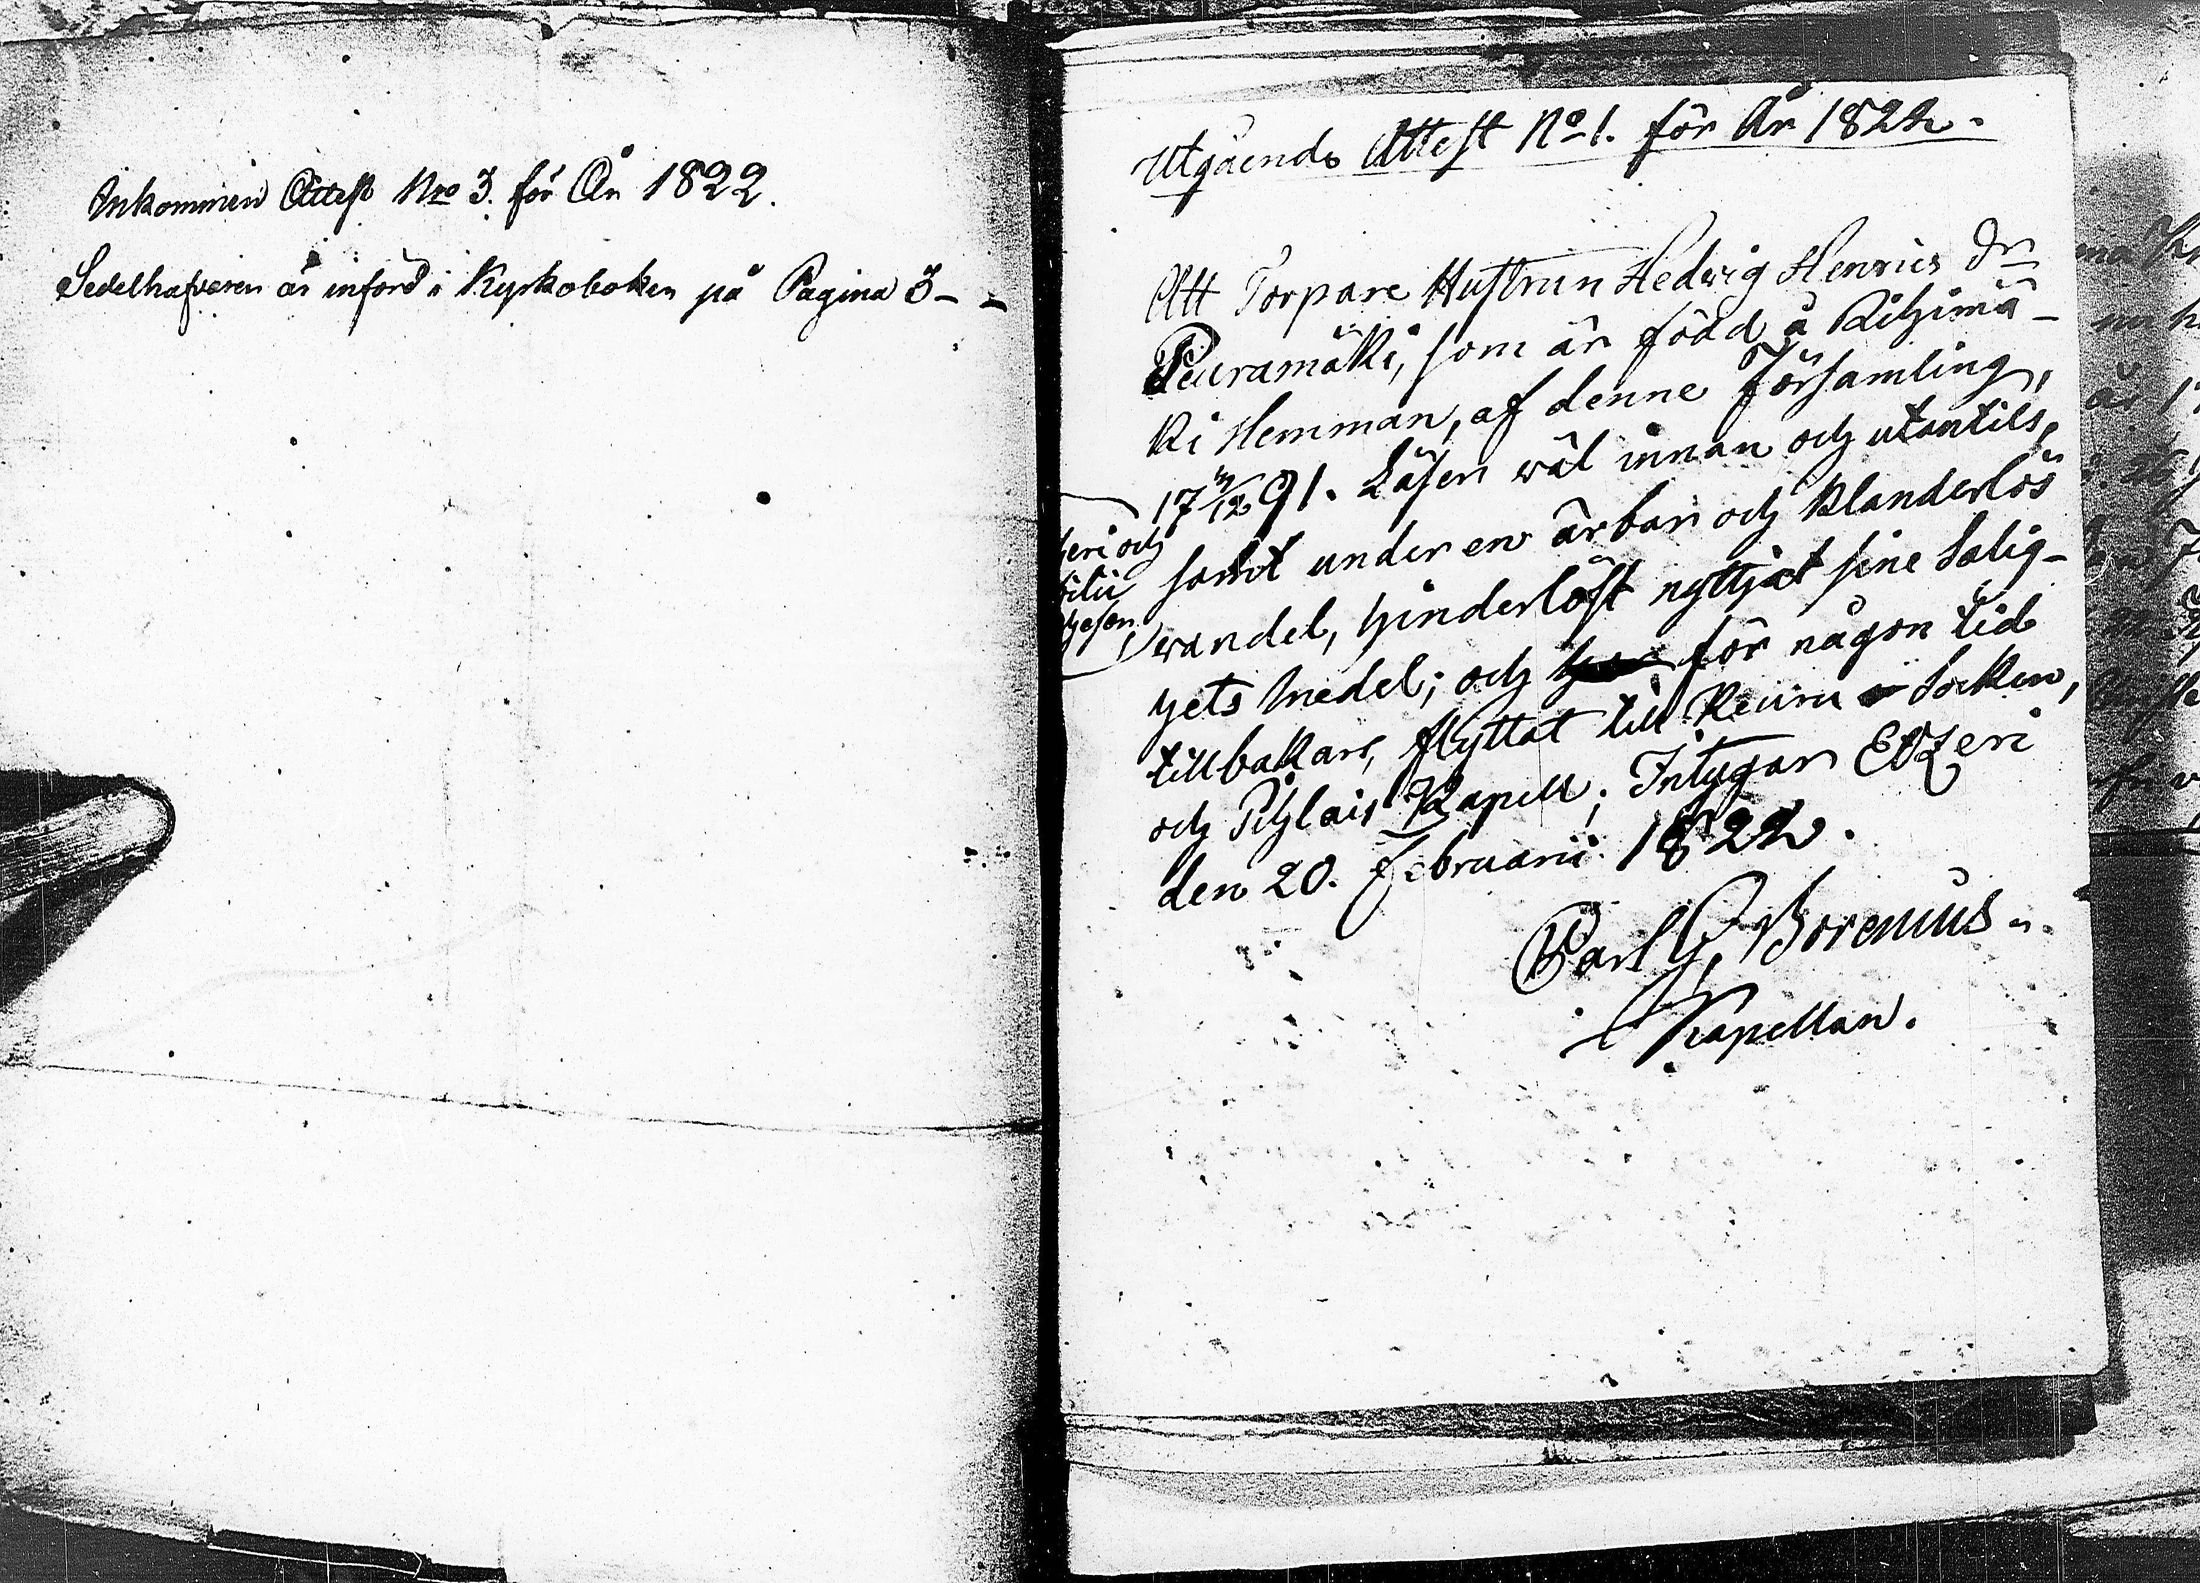 Inkommen Attest Nro 3. för År 1822.
Sedelhafvaren är införd i Kyrkoboken på Pagina 3 - -
Utgående Attest No 1. för År 1822.
Att Torpare Hustrun Hedwig Henrics Dr
Peuramäki, som är född å Rihimä-
ki Hemman, af denne Församling,
17 /12 91. Läser wäl innan och utantill,
samt under en ärbar och klanderlös
wandel, hinderlöst nyttjat sine Salig-
hets medel; och för någon tid
tillbakars, flyttat till Keuru Socken,
och Pihlais Kapell; Intygar Etzeri
den 20. Februarii 1822.
Carl G. Borenius
Kapellan.
eri och